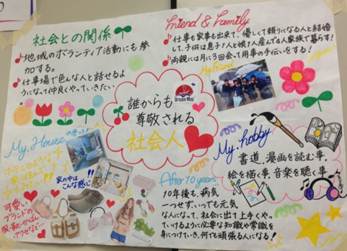 社会との関係
地域のボランティア活動にも参
加する。
仕事場で色んな人と話せるよ
うになって仲良くやっていきたい。
Friend & Family
仕事も家事も出来て、優しくて頼りになる人と結婚
して、子供は息子1人と娘1人産んで4人家族で暮らす!
両親には月3回会って用事の手伝いをする!
Dream Map
誰からも
尊敬される
社会人
My House
家の中は
こんな感じ
可愛い
ブランドの
My hobby
書道、漫画を読む事、
絵を描く事、音楽を聴く事
After 10 years
10年後も、病気
一つせず、いつも元気
な人になって、社会に出て上手くやっ
ていけるように必要なお知識や常識を
身につけていき、何でも頑張れる人になる!